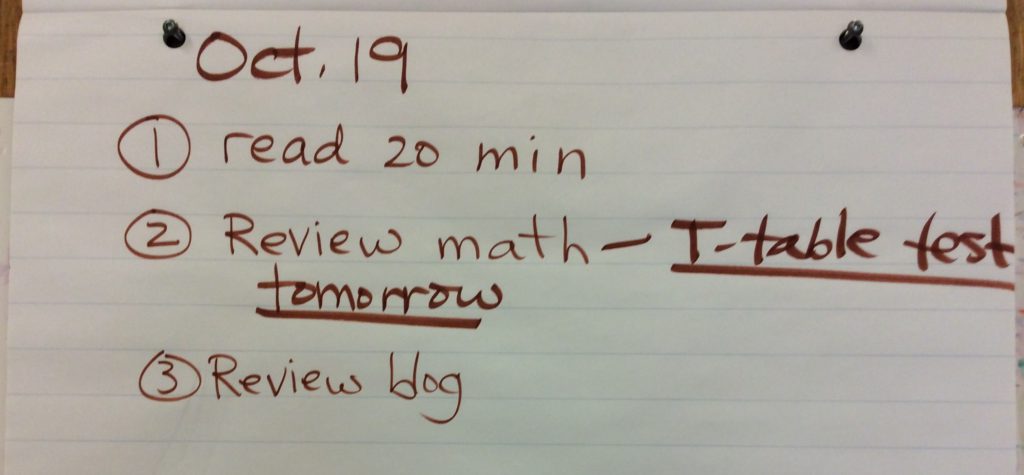 Oct. 19
① read 20 min
② Review math - T-table test
tomorrow
③ Review blog